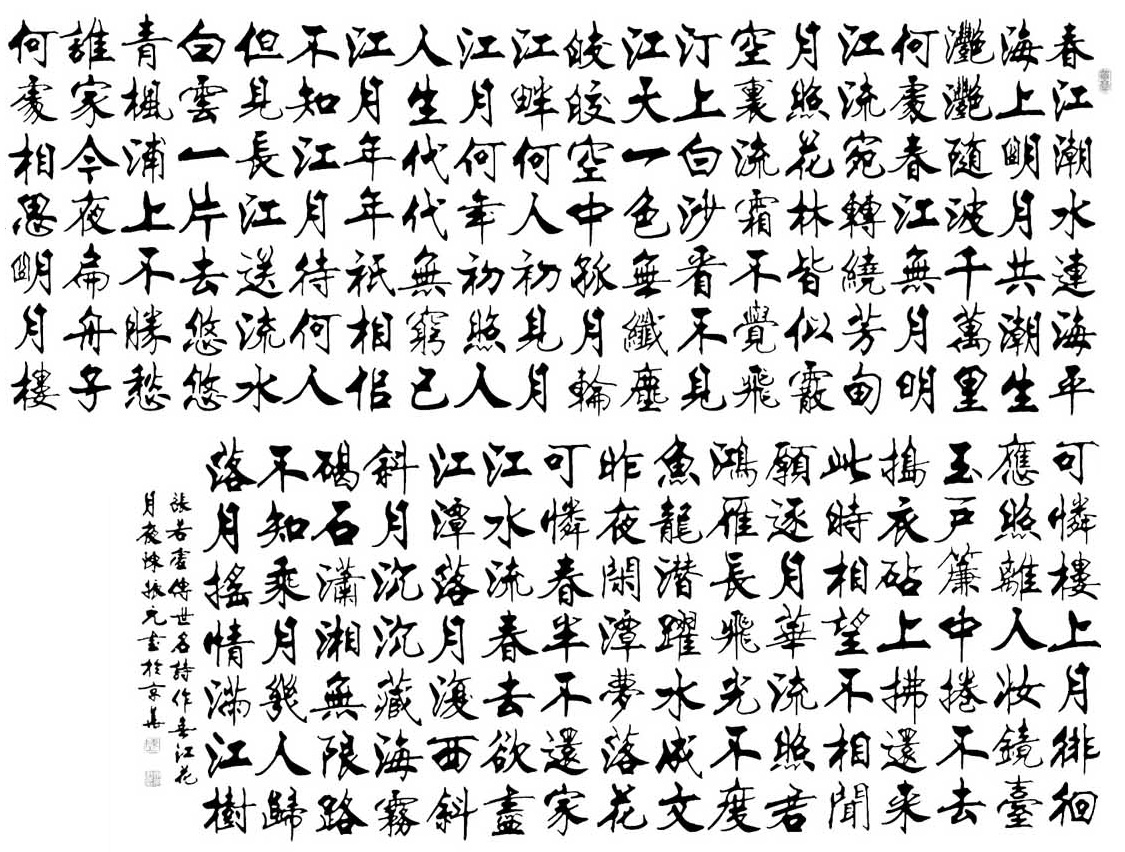 春江潮水連海平
海上明月共潮生
灩灩隨波千萬里
何處春江無月明
江流宛轉繞芳甸
月照花林皆似霰
空裏流霜不覺飛
汀上白沙看不見
江天一色無纖塵
皎皎空中孤月輪
江畔何人初見月
江月何年初照人
人生代代無窮已
江月年年衹相似
不知江月待何人
但見長江送流水
白雲一片去悠悠
青楓浦上不勝愁
誰家今夜扁舟子
何處相思明月樓
可憐樓上月徘徊
應照離人妝鏡臺
玉戶簾中捲不去
搗衣砧上拂還来
此時相望不相聞
願逐月華流照君
鴻雁長飛光不度
魚龍潛躍水成文
昨夜閑潭夢落花
可憐春半不還家
江水流春去欲盡
江潭落月復西斜
斜月沉沉藏海霧
碣石瀟湘無限路
不知乘月幾人歸
落月搖情滿江樹
張若虛傳世名詩作春江花
月夜陳振元書於京華